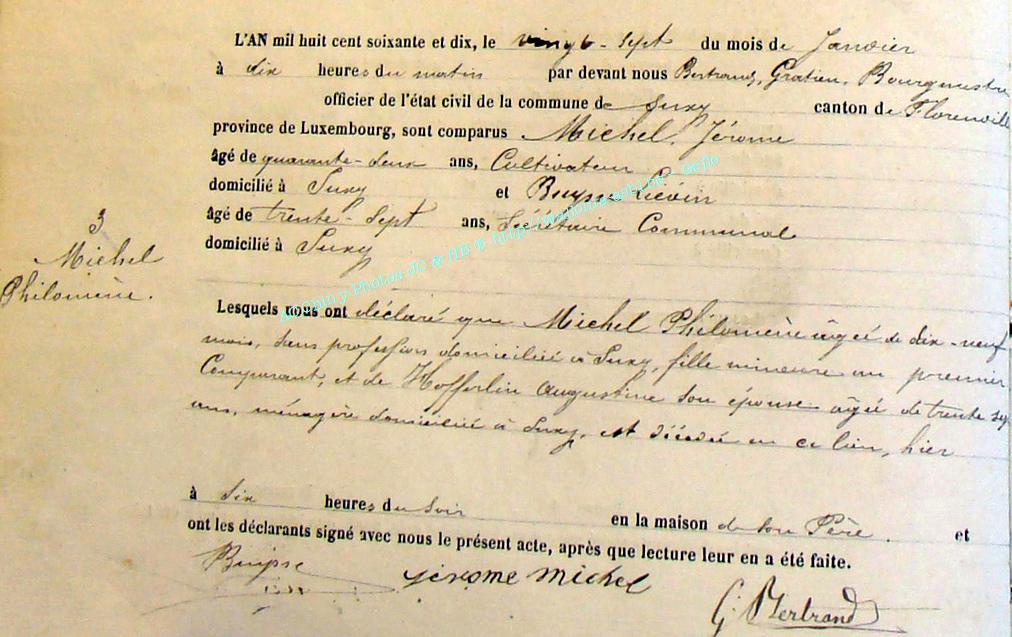 L'AN mil huit cent soixante et dix, le vingt-sept du mois de Janvier
à dix heures du matin par devant nous Bertrand, Gratien, Bourgmestre
officier de l'état civil de la commune de Suxy canton de Florenville
province de Luxembourg, sont comparus Michel, Jérome
âgé de quarante-deux ans, Cultivateur
domicilié à Suxy et Buysse Liévin
âgé de trente-sept ans, Sécrétaire Communal
domicilié à Suxy
3
Michel
Philomène.
Lesquels nous ont déclaré que Michel Philomène âgée de dix-neuf
mois, sans profession domiciliée à Suxy, fille mineure au premier
Comparant, et de Hofferlin Augustine son épouse âgée de trente sept
ans, ménagère domiciliée à Suxy, est décédée en ce lieu, hier
à six heures du soir en la maison de son Père. et
ont les déclarants signé avec nous le présent acte, après que lecture leur en a été faite.
Buysse
jérome michel
G. Bertrand